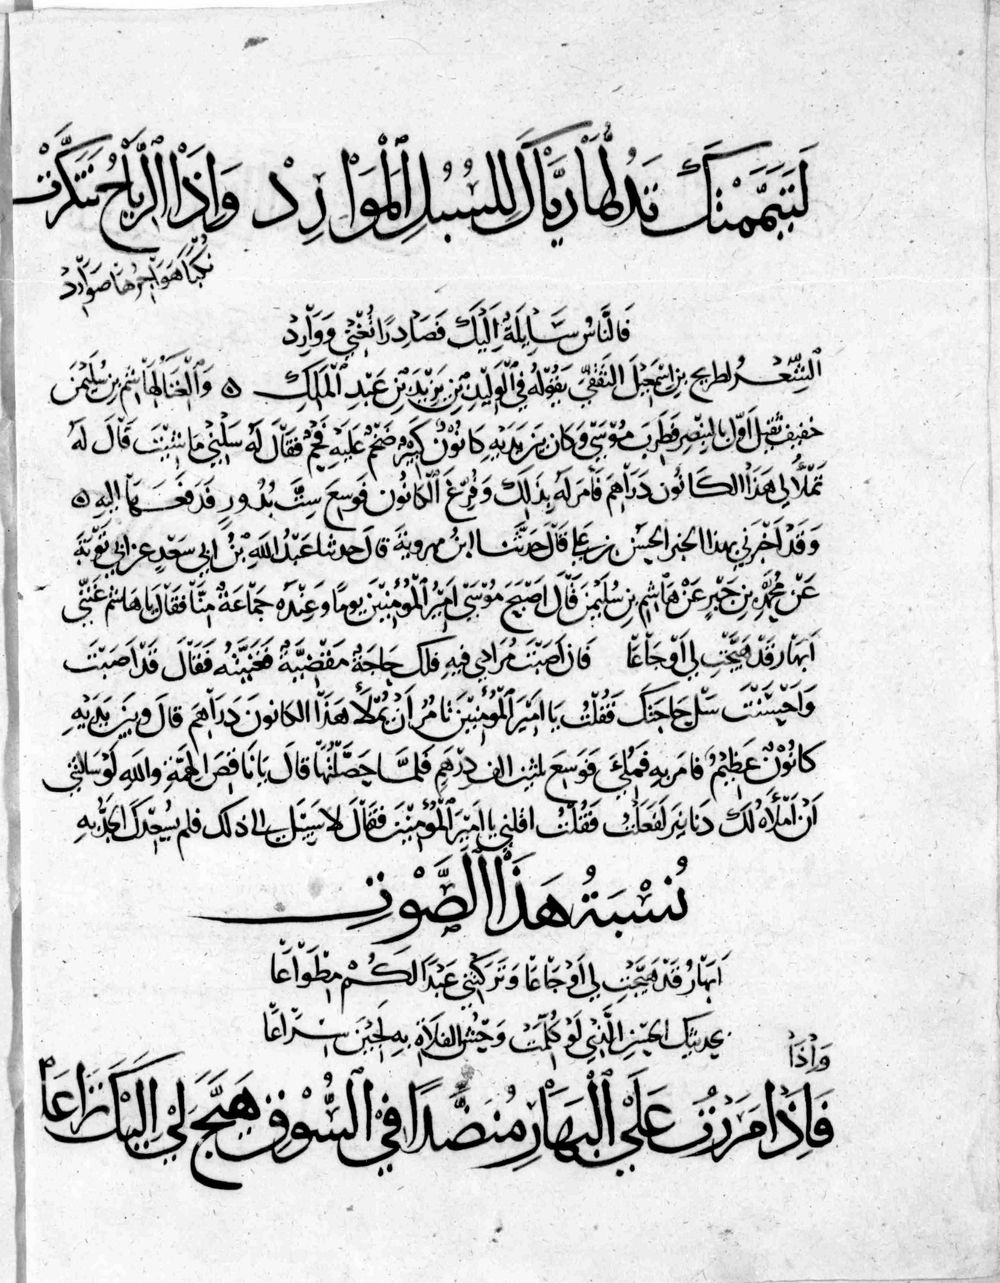 لَتَيَمَّمَتْكَ تَدُلُّهَا رَيَّاكَ لِلسُبُلِ الْمَوَارِدْ وَاِذَا الرِّيَاحُ تَنَكَّرَتْ
نُكْبًا هَوَاجِرُهَا صَوَارِدْ
فَالنَّاسُ سَايِلَةٌ اِلَيْكَ فَصَادِرًا تُغْنِي وَوَارِدْ
الشِّعْرُ لطريح بن اسْمَعِيْلَ الثَقَفيِّ يَقُوْلُهُ فِي الْوَلِيْدِ بْنِ يَزِيْدَ بْنِ عَبْدِ الْمَلِكِ ه وَالْغِنَا لِهَاشِم بن سُلَيْمٰنَ
خفيف ثقيل اَوّل بِالبنصِر فَطَرِبَ مُوْسَى وَكَان بَيْنَ يَدَيْهِ كَانُوْنٌ كَبِيْرٌ ضَخْمٌ عَلَيْهِ فَحْمٌ فَقَالَ لَهُ سَلْنِي مَا شِئْتَ قَالَ لَهُ
تَمْلَأُ لِي هَذَا الكَانُون دَرَاهِمَ فَاَمَرَ لَهُ بِذَلِكَ وَفُرِّغَ الْكَانُون فَوَسِعَ سِتَّ بُدُورٍ فَدَفَعَهَا اليه ه
وَقَدْ اَخْبَرَنِي بهذا الخبر الحَسَنُ بن عَلِي قَالَ حَدَّثَنَا ابْنُ مهروية قَالَ حدثنا عَبْدُ اللهِ بْنُ ابِي سَعْدٍ عن ابي تَوْبَةَ
عَنْ مُحَمَّدِ بن جَبْرٍ عَنْ هَاشِم بن سُلَيْمٰنَ قَالَ اَصْبَحَ مُوْسَى اَمِيْرُ الْمُؤْمِنِيْنَ يومًا وَعِنْدَهُ جَمَاعَةٌ مِنَّا فَقَالَ يَا هَاشم غَنِّنِي
اَبَهَارُ قَدْ هَيَّجْتِ لِي اَوْجَاعَا فَاِن اَصَبْتَ مُرَادِي فيهِ فَلَكَ حَاجَةٌ مَقْضِيَّةٌ فَغَنَّيْتُه فَقَالَ قَدْ اَصَبْتَ
وَاَحْسَنْتَ سَلْ حَاجَتَكَ فَقُلْتُ يَا اَمِيْرَ الْمُؤْمِنِيْنَ تَأمُرُ اَنْ يُمْلَأَ هَذَا الكَانونَ دَرَاهِمَ قَالَ وبَيْنَ يَدَيْهِ
كَانُوْنٌ عَظِيْمٌ فَامَرَ بِهِ فَمُلِئَ فَوَسِعَ ثلثين الف دِرْهَمٍ فَلَمَّا حَصَّلْتُهَا قَالَ يَا نَاقِصَ الهِمَّةِ وَاللهِ لَوْ سَالْتَنِي
اَنْ اَمْلَأَهُ لَكَ دَنَانِيْرَ لَفَعَلْتُ فَقُلْتُ اقلني يَا اَمِيْرَ الْمُؤْمِنِيْنَ فَقَالَ لَا سَبِيْلَ الى ذلك فلم يُسْعِدْكَ الجَدُّ بِهِ
نُسْبَةُ هَذَا الصَّوْتِ
اَبَهَارُ قَدْ هَيَّجْتِ لِي اَوْجَاعَا وَتَرَكْتِنِي عَبْدًا لَكُمْ مِطْوَاعَا
بِحَدِيثِكِ الحَسَنِ الَّذِي لَوْ كُلِّمَتْ وَحْشُ الفَلَاةِ بِهِ لَجِئْنَ سِرَاعَا
وَاِذَا
فَاِذَا مَرَرْتُ عَلَى الْبَهَارِ مُنَضَّدًا فِي السُّوْقِ هَيَّجَ لِي اِلَيْكَ نِزَاعَا